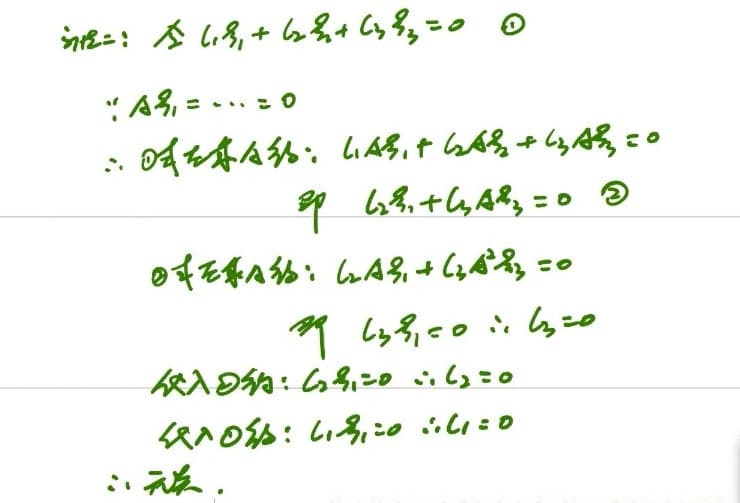 证法二: 令 C₁ξ₁ + C₂ξ₂ + C₃ξ₃ = 0 ①
∵ Aξ₁ = ··· = 0
∴ ①式左乘A约: C₁Aξ₁ + C₂Aξ₂ + C₃Aξ₃ = 0
即 C₂ξ₁ + C₃Aξ₃ = 0 ②
②式左乘A约: C₂Aξ₁ + C₃A²ξ₃ = 0
即 C₃ξ₁ = 0 ∴ C₃ = 0
代入②约: C₂ξ₁ = 0 ∴ C₂ = 0
代入①约: C₁ξ₁ = 0 ∴ C₁ = 0
∴ 无关.